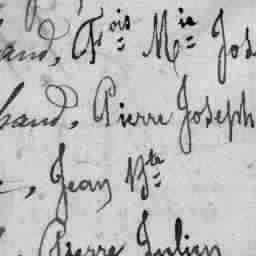 and, Fois Mie Jos
hand, Pierre Joseph
, Jean Bte
, Pierre Julien